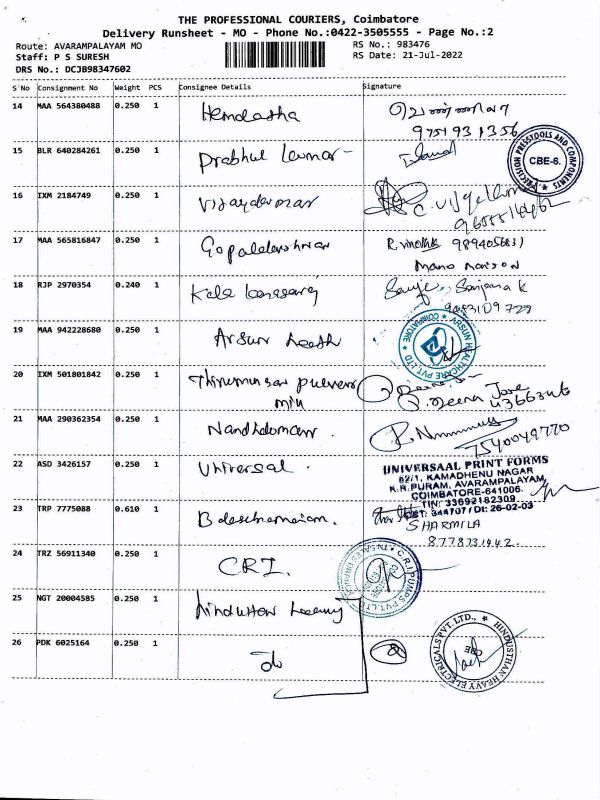 THE PROFESSIONAL COURIERS, Coimbatore
Delivery Runsheet - MO - Phone No.:0422-3505555 - Page No.:2
Route: AVARAMPALAYAM MO
Staff: P S SURESH
DRS No.: DCJB98347602
RS No.: 983476
RS Date: 21-Jul-2022
S No Consignment No Weight PCS Consignee Details Signature
14 MAA 564380488 0.250 1 Hemalatha
9751931356
15 BLR 640284261 0.250 1 Prabhu Kumar
PRECISION PRESSTOOLS AND COMPONENTS
CBE-6.
16 IXM 2184749 0.250 1 Vijayakumar
17 MAA 565816847 0.250 1 Gopalakrishnan R. Vinoth
Mano Maison
18 RJP 2970354 0.240 1 Kala Sanjana K
19 MAA 942228680 0.250 1 Arsun Health
ARSUN HEALTHCARE PVT. LTD. COIMBATORE
20 IXM 501801842 0.250 1
21 MAA 290362354 0.250 1 Nandhakumar
7540049770
22 ASD 3426157 0.250 1 Universal
UNIVERSAAL PRINT FORMS
62/1, KAMADHENU NAGAR
K.R.PURAM, AVARAMPALAYAM,
COIMBATORE-641006.
TIN: 33692182309
CST: 344707 / Dt: 26-02-03
23 TRP 7775088 0.610 1
SHARMILA
24 TRZ 56911340 0.250 1 CRI.
C.R.I. PUMPS PVT. LTD.
25 NGT 20004585 0.250 1 Hindustan Heavy
26 PDK 6025164 0.250 1 do
HINDUSTHAN HEAVY ELECTRICALS PVT. LTD.,
CBE